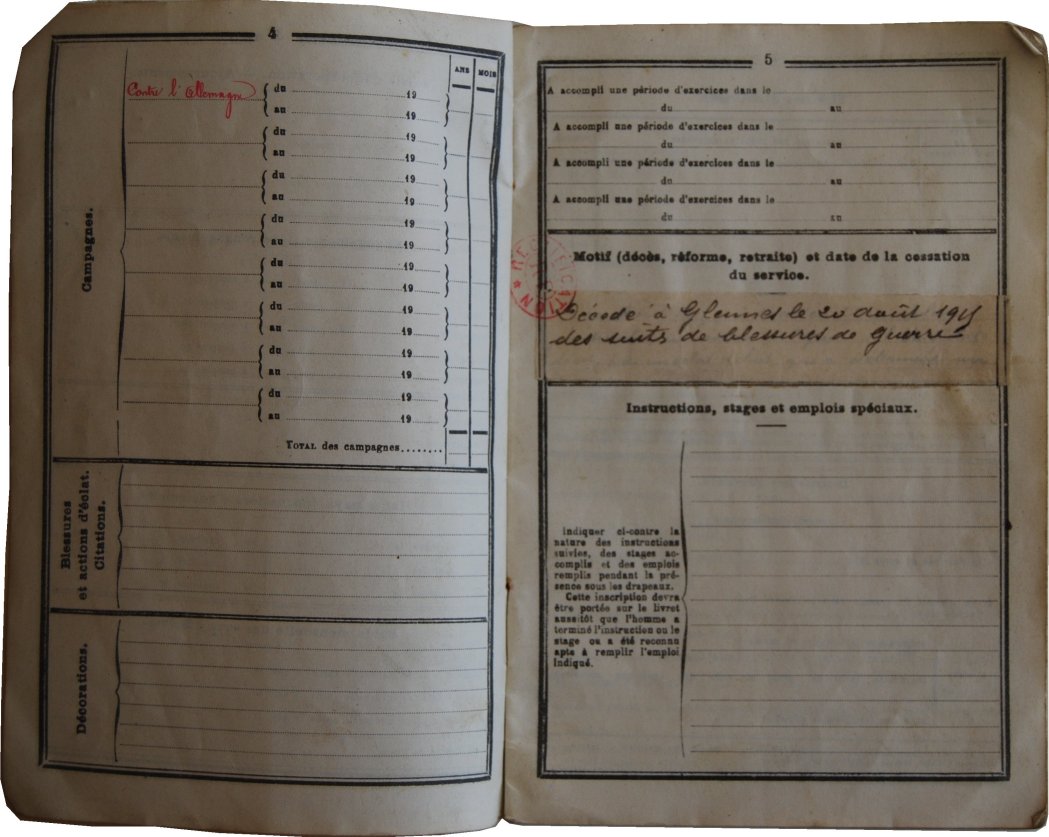 4
ANS MOIS
Contre l'Allemagne du 19
au 19
du 19
au 19
du 19
au 19
du 19
au 19
du 19
au 19
du 19
au 19
du 19
au 19
du 19
au 19
Campagnes.
TOTAL des campagnes........
Blessures
et actions d'éclat.
Citations.
Décorations.
5
A accompli une période d'exercices dans le
du au
A accompli une période d'exercices dans le
du au
A accompli une période d'exercices dans le
du au
A accompli une période d'exercices dans le
du au
Motif (décès, réforme, retraite) et date de la cessation
du service.
Décédé à Glennes le 20 août 1915
des suites de blessures de guerre
Instructions, stages et emplois spéciaux.
Indiquer ci-contre la
nature des instructions
suivies, des stages ac-
complis et des emplois
remplis pendant la pré-
sence sous les drapeaux.
Cette inscription devra
être portée sur le livret
aussitôt que l'homme a
terminé l'instruction ou le
stage ou a été reconnu
apte à remplir l'emploi
indiqué.